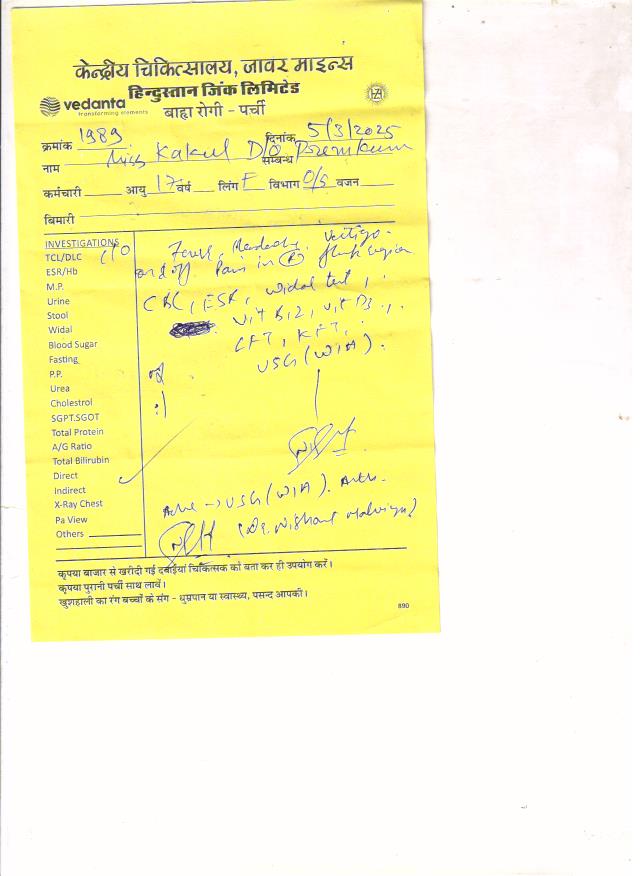 केन्द्रीय चिकित्सालय, जावर माइन्स
हिन्दुस्तान जिंक लिमिटेड
vedanta
transforming elements
बाह्य रोगी - पर्ची
क्रमांक 1989 दिनांक 5/3/2025
नाम Miss Kakul D/O सम्बन्ध Premkum
कर्मचारी आयु 17 वर्ष लिंग F विभाग O/S वजन
बिमारी
INVESTIGATIONS
TCL/DLC
ESR/Hb
M.P.
Urine
Stool
Widal
Blood Sugar
Fasting
P.P.
Urea
Cholestrol
SGPT.SGOT
Total Protein
A/G Ratio
Total Bilirubin
Direct
Indirect
X-Ray Chest
Pa View
Others
C/O Fever, Headache, Vertigo.
on & off. Pain in (R) flank region
CBC, ESR, widal test,
Vit B12, Vit D3,
LFT, KFT,
USG (W/A).
Adv → USG (W/A).
(Dr. Nishant Malviya)
कृपया बाजार से खरीदी गई दवाईयां चिकित्सक को बता कर ही उपयोग करें।
कृपया पुरानी पर्ची साथ लावें।
खुशहाली का रंग बच्चों के संग - धुम्रपान या स्वास्थ्य, पसन्द आपकी।
890